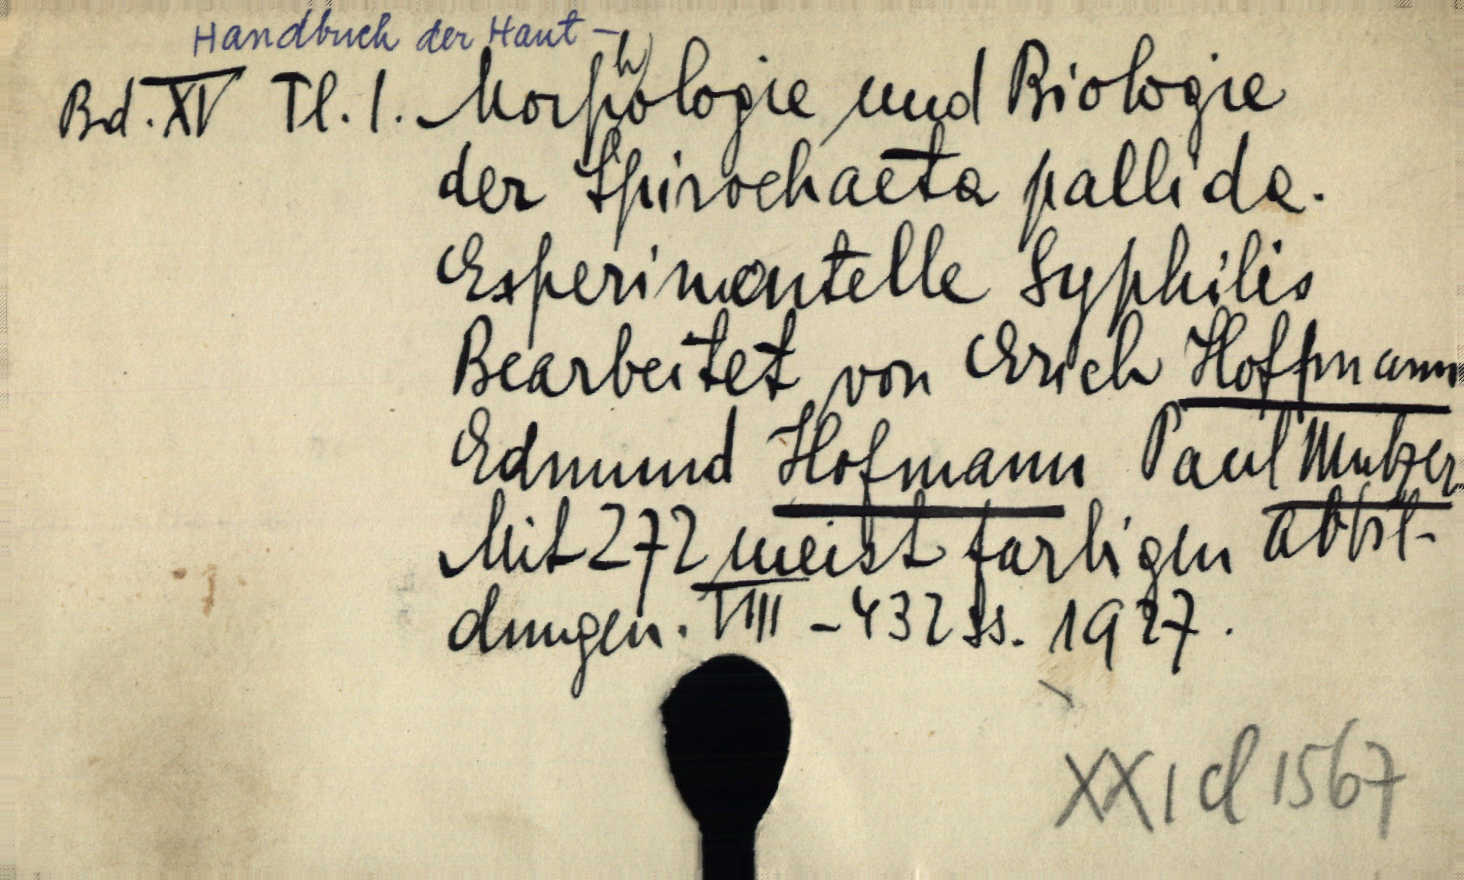 Handbuch der Haut -
Bd. XV Tl. 1. Morphologie und Biologie
der Spirochaeta pallida.
Experimentelle Syphilis
Bearbeitet von Erich Hoffmann
Edmund Hofmann Paul Mulzer
Mit 272 meist farbigen Abbil-
dungen. VIII - 432 ss. 1927.
XXI d 1567